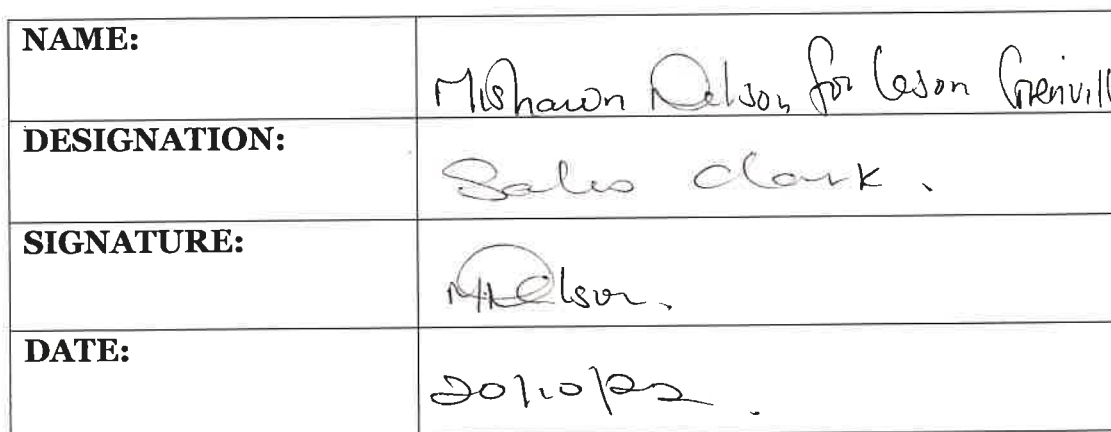 NAME: Mishawn Nelson for Leson Grenvill
DESIGNATION: Sales Clark.
SIGNATURE: MNelson.
DATE: 20/10/22.